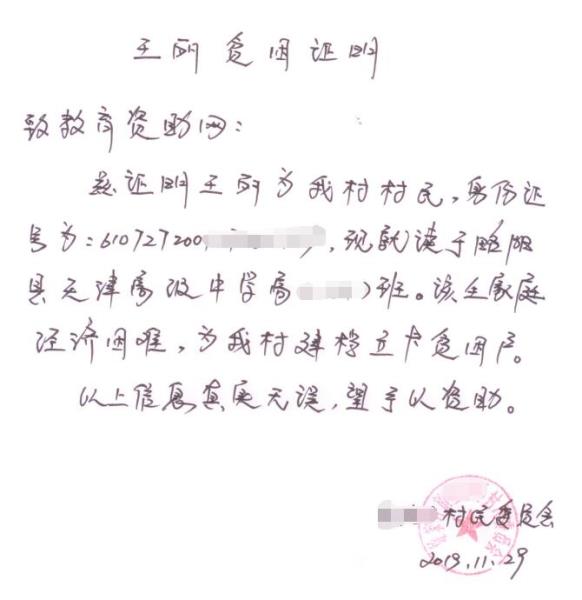 王丽贫困证明
致教育资助网：
兹证明王丽为我村村民，身份证
号为：610727200，现就读于略阳
县天津高级中学高）班。该生家庭
经济困难，为我村建档立卡贫困户。
以上信息真实无误，望予以资助。
村民委员会
2019.11.29